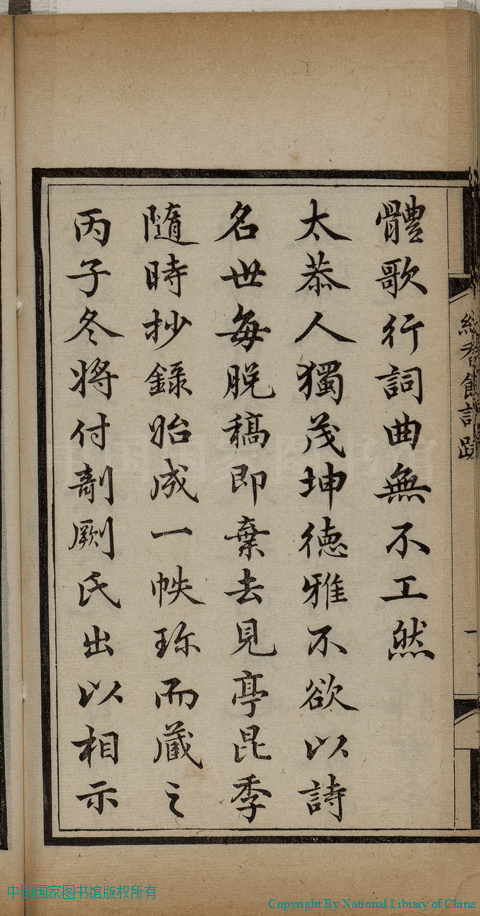 體歌行詞曲無不工然
太恭人獨茂坤德雅不欲以詩
名世每脱稿即棄去見亭昆季
隨時抄錄始成一帙珍而藏之
丙子冬將付剞劂氏出以相示
香館詩跋
一
中国国家图书馆版权所有
Copyright By National Library of China